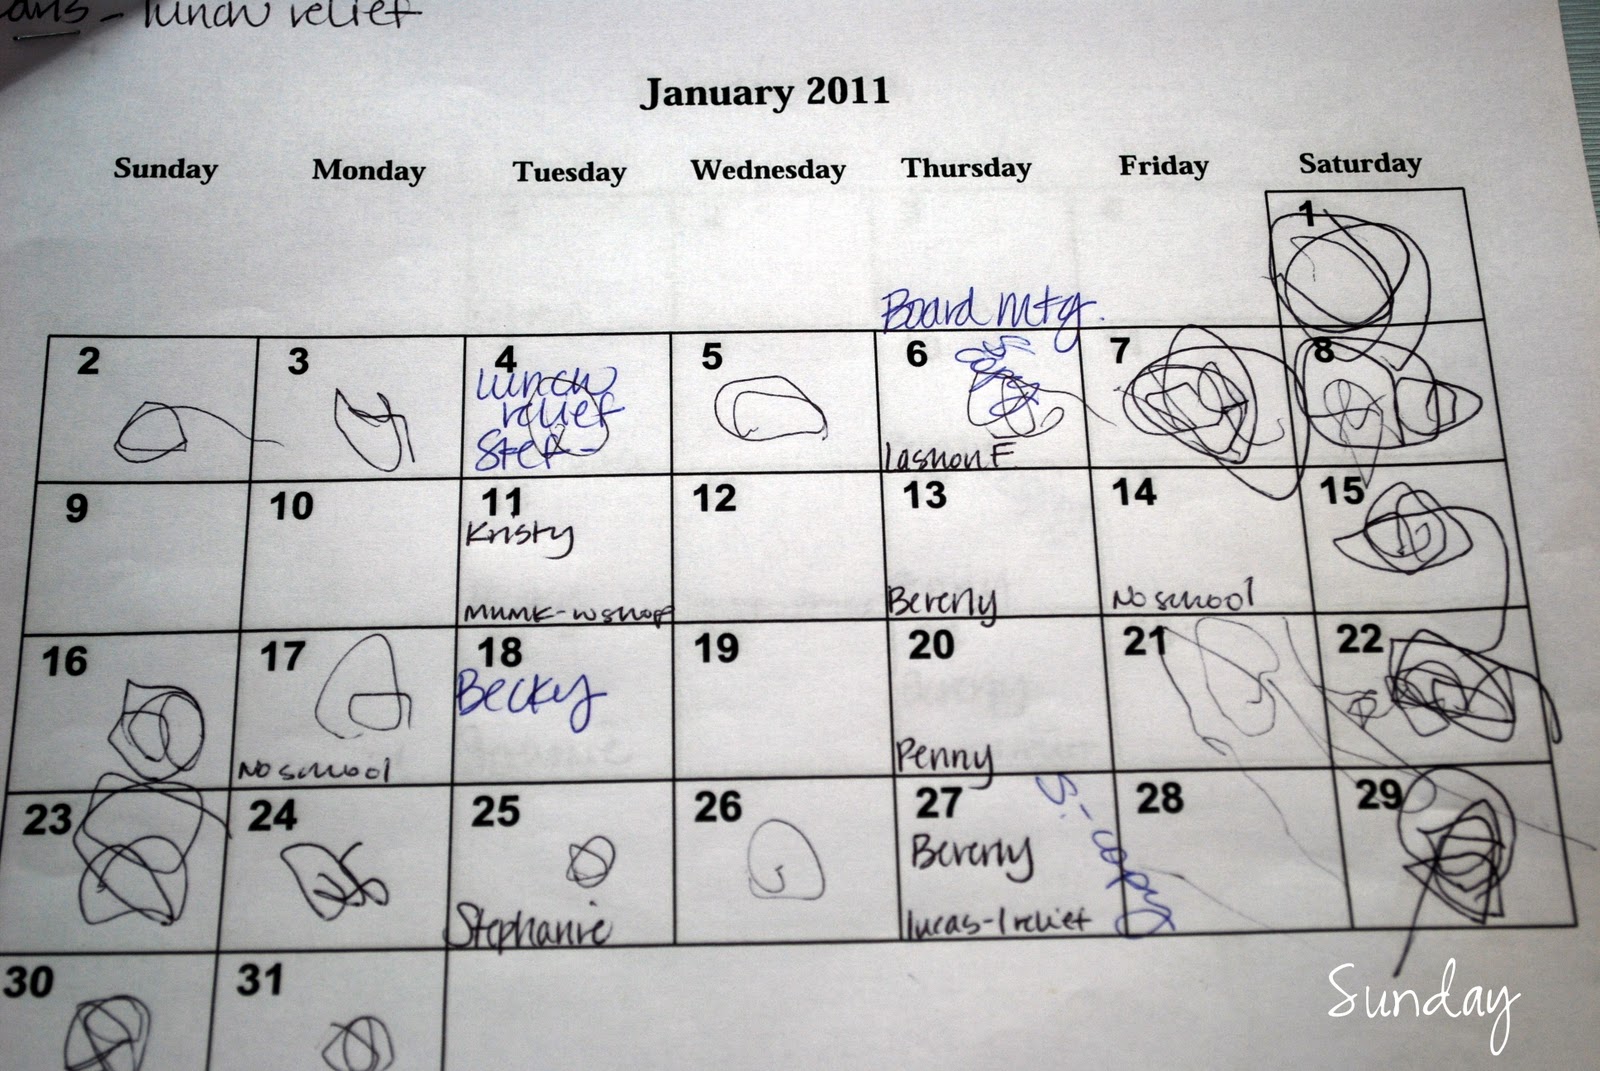 lunch relief
January 2011
Sunday Monday Tuesday Wednesday Thursday Friday Saturday
1
Board Mtg.
2 3 4 5 6 7 8
lunch
relief
Stef-
Lashon F
9 10 11 12 13 14 15
Kristy
Beverly
No school
16 17 18 19 20 21 22
Becky
No school
Penny
23 24 25 26 27 28 29
Beverly
S-copy
Stephanie
lucas-lrelief
30 31
Sunday